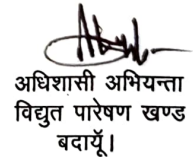 अधिशासी अभियन्ता
विद्युत पारेषण खण्ड
बदायूॅं।